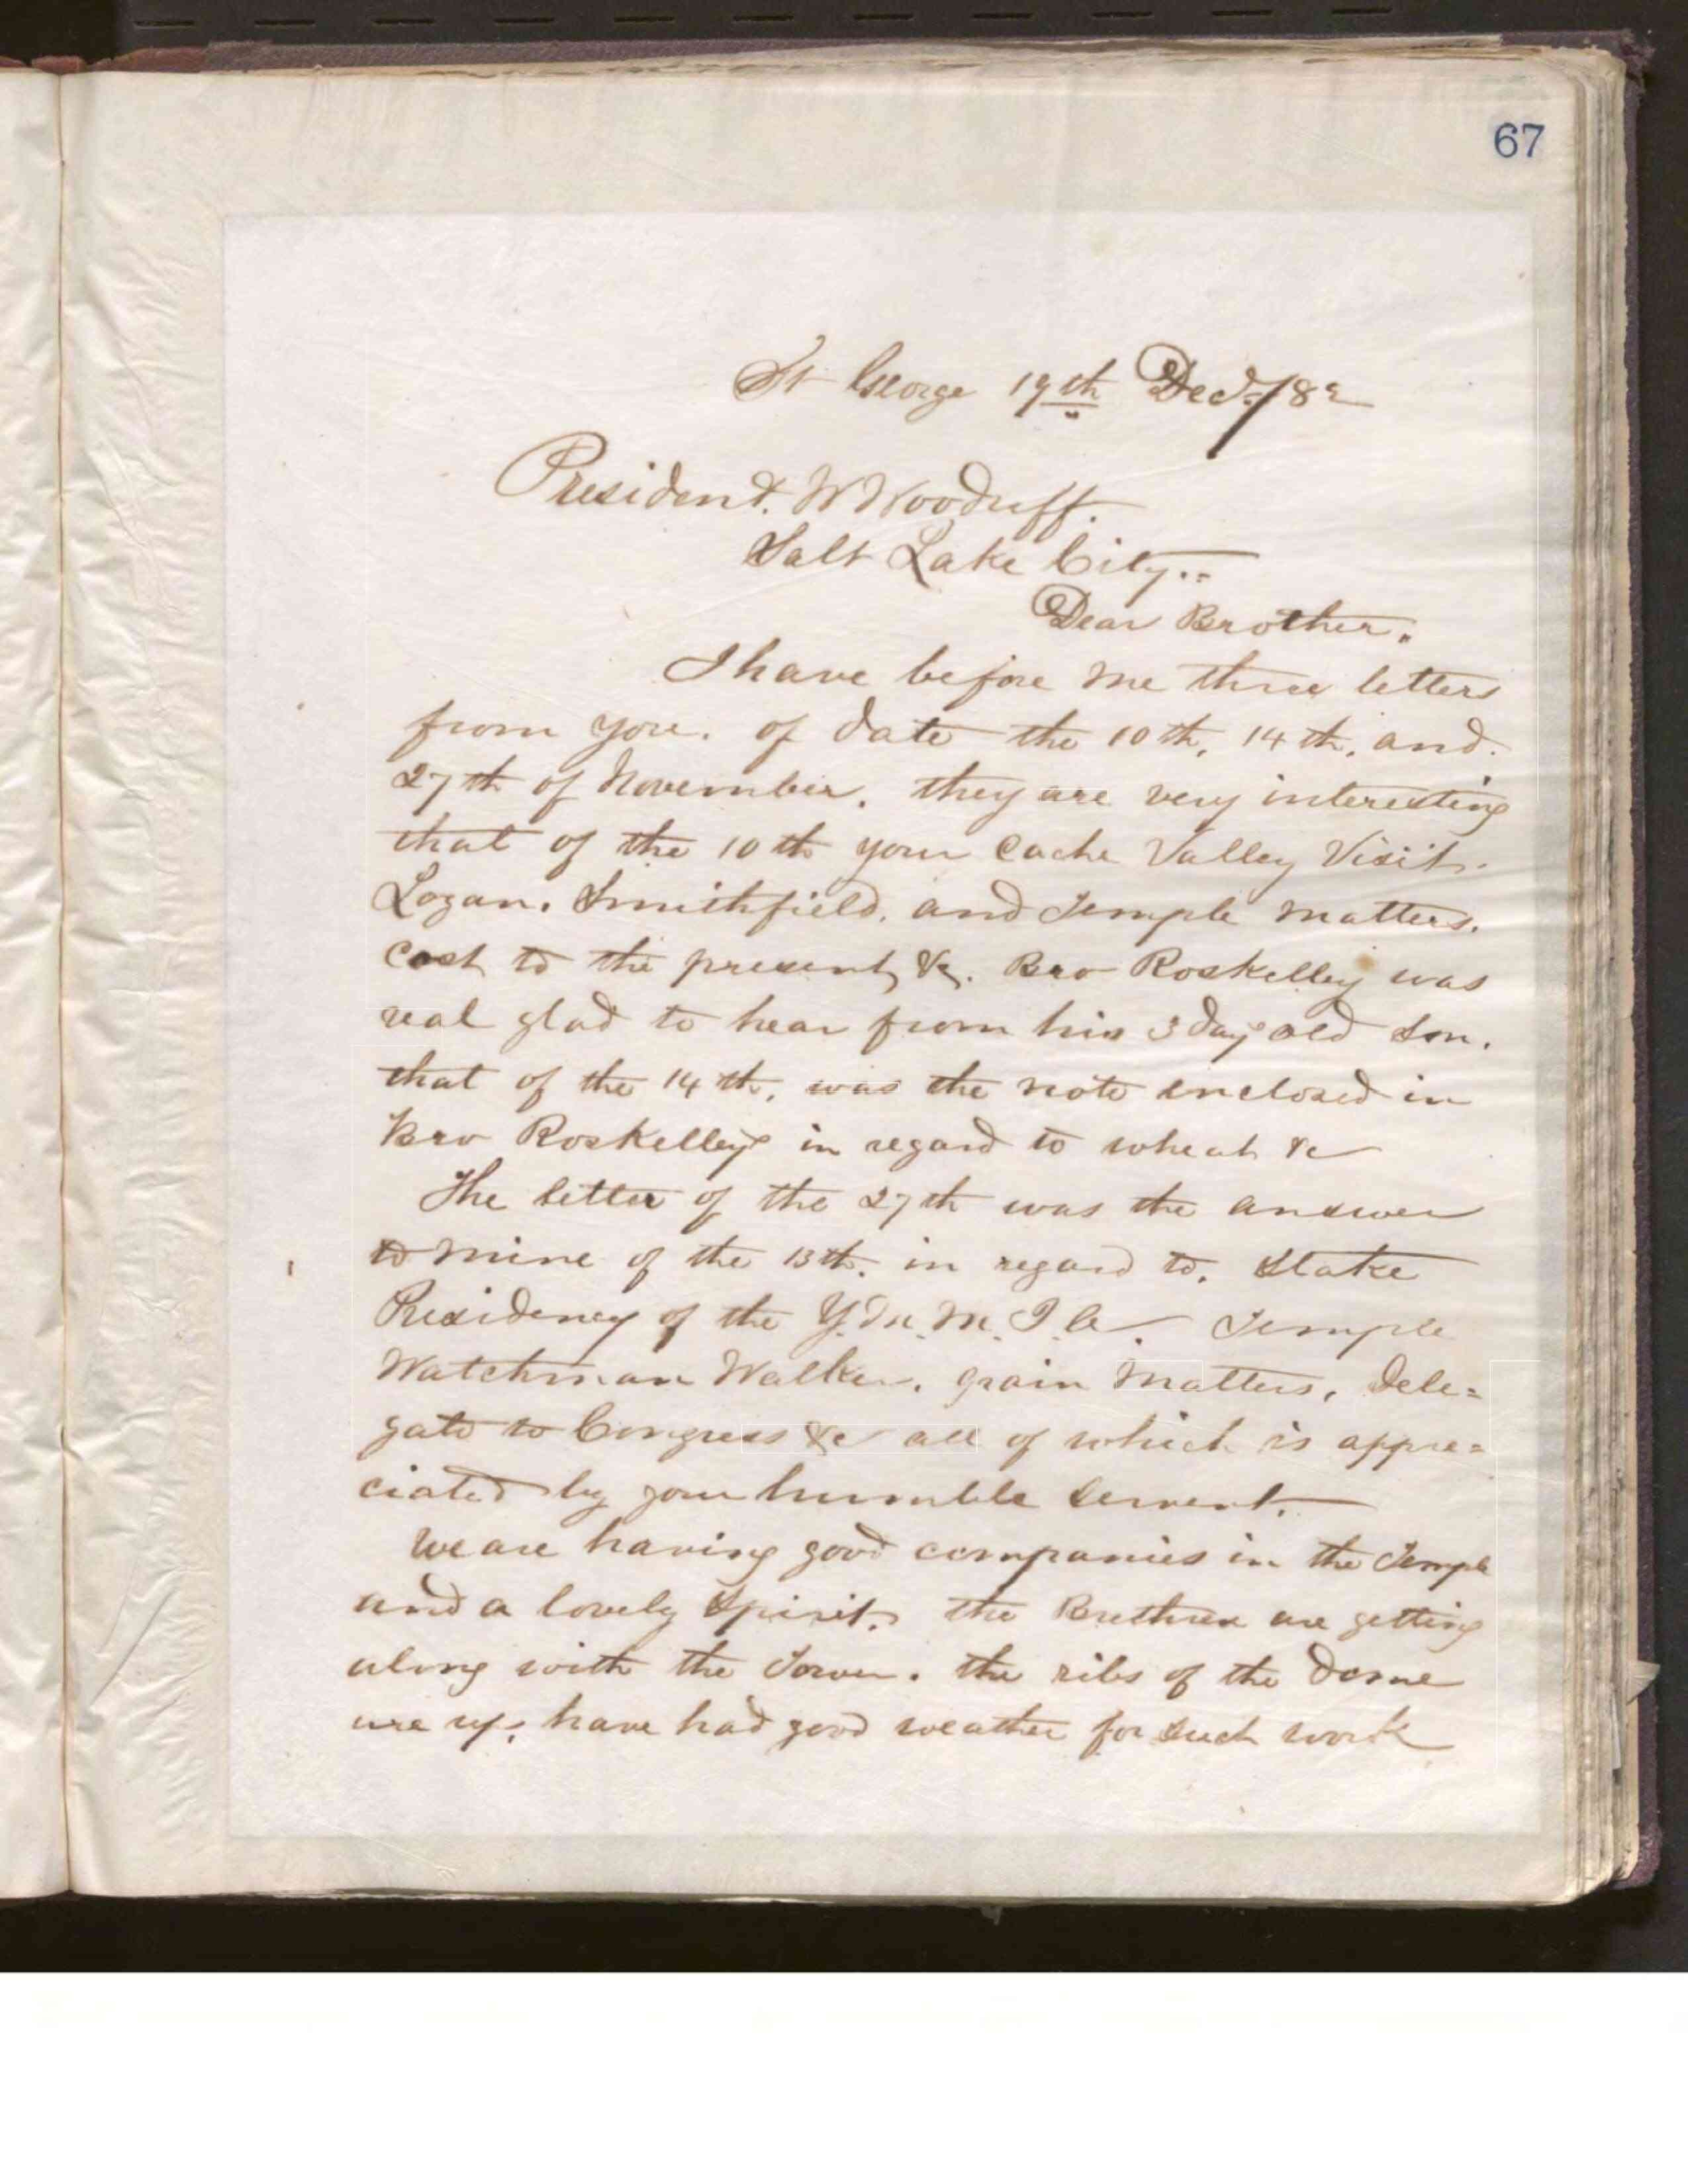 67
St George 19th Dec. /82
President. W Woodruff.
Salt Lake City..
Dear Brother.
I have before me three letters
from you. of date the 10th, 14th, and.
27th of November. they are very interesting
that of the 10th your Cache Valley Visit.
Logan. Smithfield. and Temple matters.
Cost to the present &c. Bro Roskelley was
real glad to hear from his 3 day old Son.
that of the 14th, was the note enclosed in
Bro Roskelleys in regard to wheat &c
The letter of the 27th was the answer
to mine of the 13th. in regard to. Stake
Presidency of the Y. M. M. I. A. Temple
Watchman Walker. grain Matters, Dele=
gate to Congress &c all of which is appre=
ciated by your humble servent.
We are having good companies in the Temple
and a lovely Spirit. the Brethren are getting
along with the Tower. the ribs of the Dome
are up. have had good weather for such work